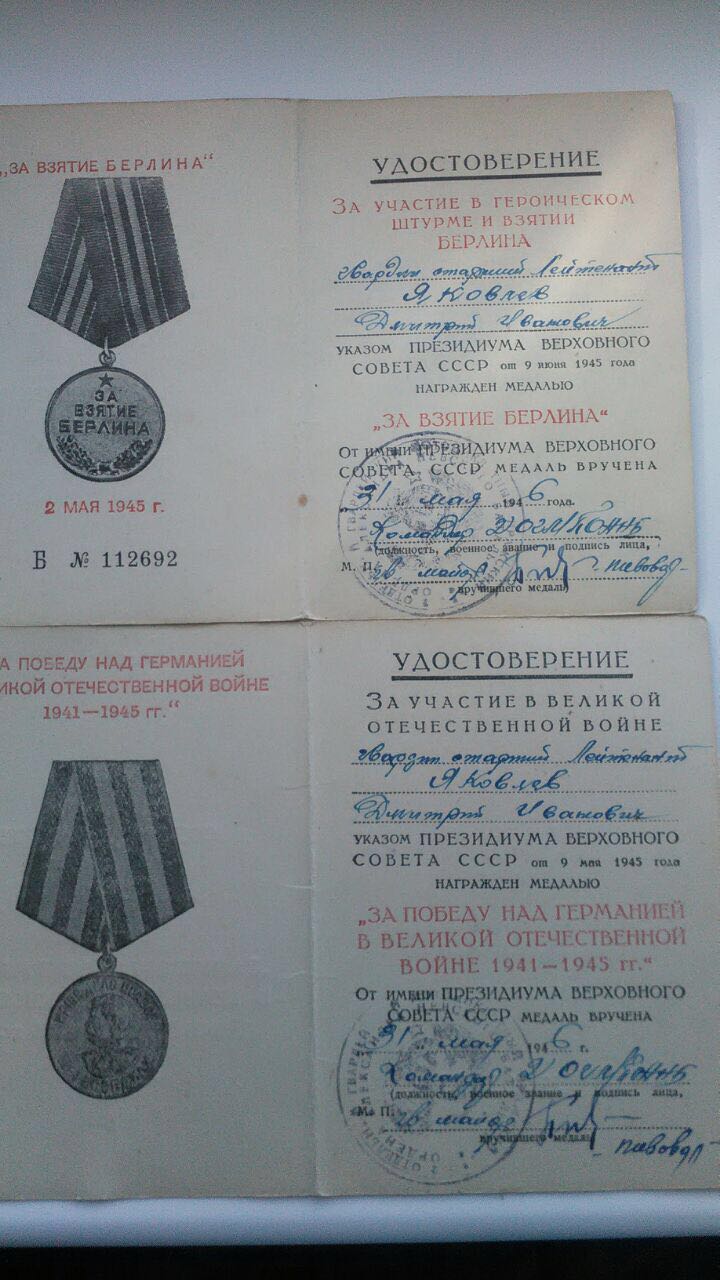 „ЗА ВЗЯТИЕ БЕРЛИНА“
ЗА
ВЗЯТИЕ
БЕРЛИНА
2 МАЯ 1945 г.
Б № 112692
УДОСТОВЕРЕНИЕ
ЗА УЧАСТИЕ В ГЕРОИЧЕСКОМ
ШТУРМЕ И ВЗЯТИИ
БЕРЛИНА
Гвардии старший Лейтенант
Яковлев
Дмитрий Иванович
УКАЗОМ ПРЕЗИДИУМА ВЕРХОВНОГО
СОВЕТА СССР от 9 июня 1945 года
НАГРАЖДЕН МЕДАЛЬЮ
„ЗА ВЗЯТИЕ БЕРЛИНА“
ОТ ИМЕНИ ПРЕЗИДИУМА ВЕРХОВНОГО
СОВЕТА СССР МЕДАЛЬ ВРУЧЕНА
31 мая 1946 года.
Командир
(должность, военное звание и подпись лица,
М. П. гв майор
вручившего медаль)
А ПОБЕДУ НАД ГЕРМАНИЕЙ
ИКОЙ ОТЕЧЕСТВЕННОЙ ВОЙНЕ
1941—1945 гг.“
УДОСТОВЕРЕНИЕ
ЗА УЧАСТИЕ В ВЕЛИКОЙ
ОТЕЧЕСТВЕННОЙ ВОЙНЕ
Гвардии старший Лейтенант
Яковлев
Дмитрий Иванович
УКАЗОМ ПРЕЗИДИУМА ВЕРХОВНОГО
СОВЕТА СССР от 9 мая 1945 года
НАГРАЖДЕН МЕДАЛЬЮ
„ЗА ПОБЕДУ НАД ГЕРМАНИЕЙ
В ВЕЛИКОЙ ОТЕЧЕСТВЕННОЙ
ВОЙНЕ 1941—1945 гг.“
ОТ ИМЕНИ ПРЕЗИДИУМА ВЕРХОВНОГО
СОВЕТА СССР МЕДАЛЬ ВРУЧЕНА
31 мая 1946 г.
Командир
(должность, военное звание и подпись лица,
М. П. гв майор
вручившего медаль)